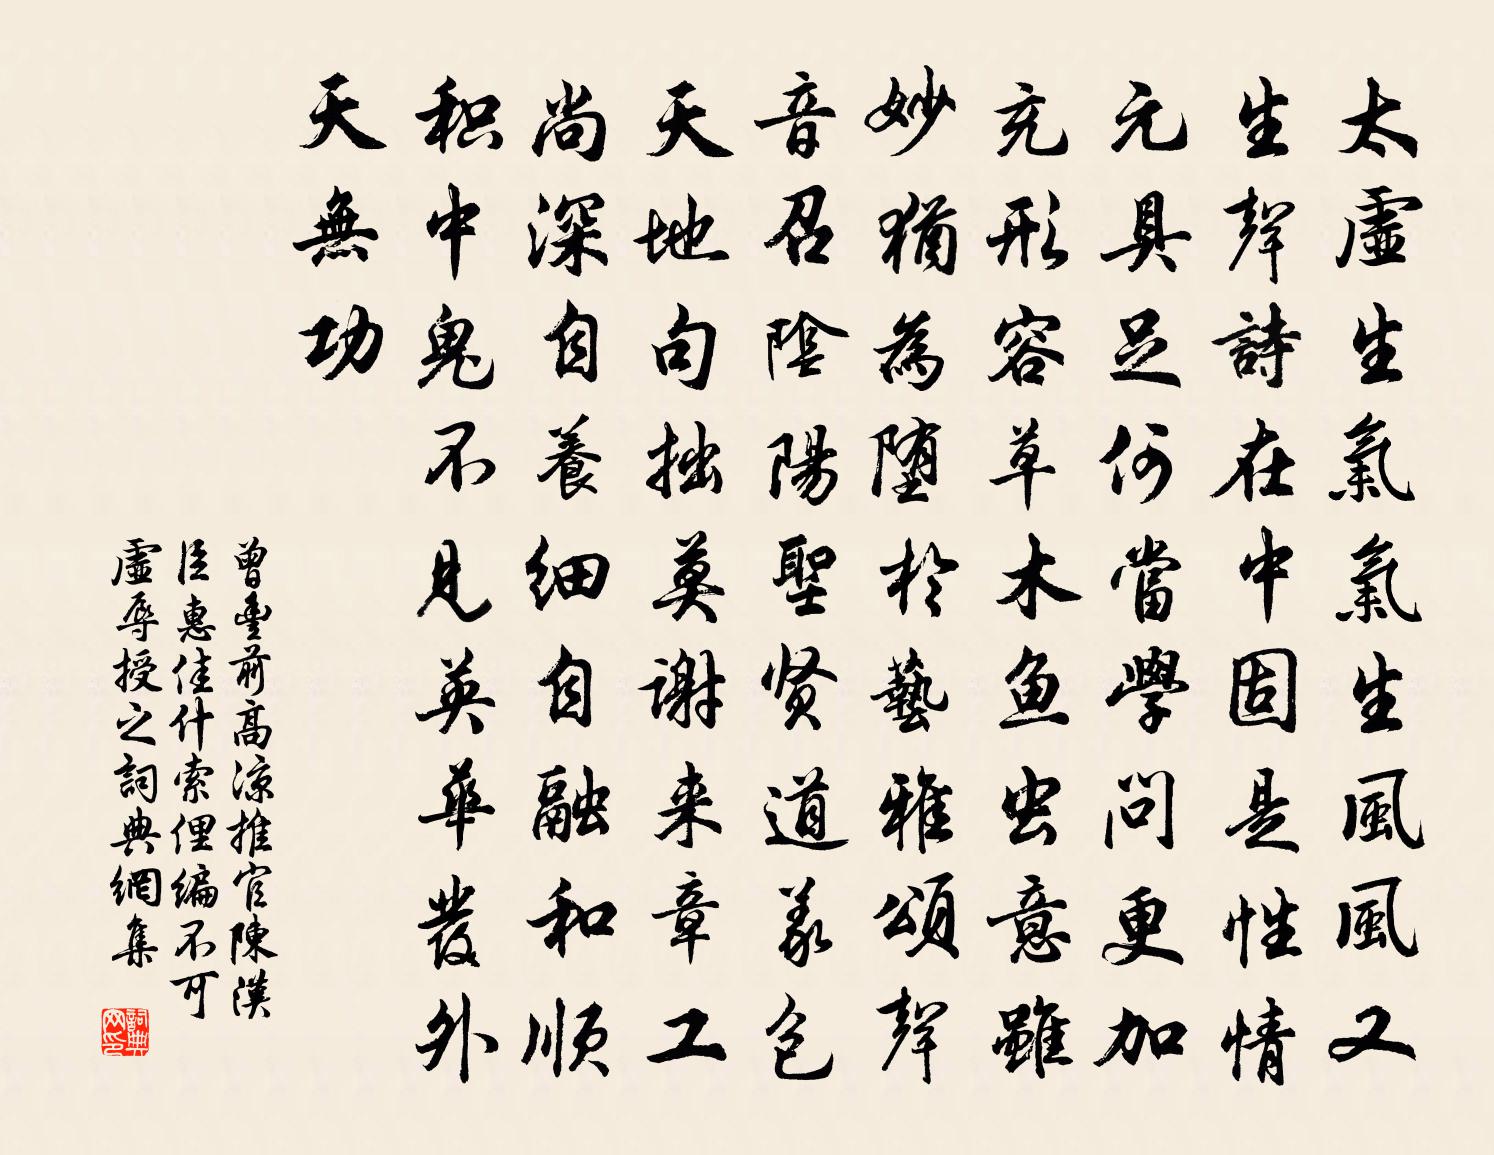 太虛生氣氣生風風又
生聲詩在中固是性情
元具足何當學問更加
充形容草木鱼虫意雖
妙猶為堕於藝雅頌聲
音召陰陽聖贤道義包
天地句拙莫謝来章工
尚深自養细自融和順
积中鬼不見英華發外
天無功
曾豊前高凉推官陳漢
臣惠佳什索俚编不可
虛辱授之詞典網集
詞典网印